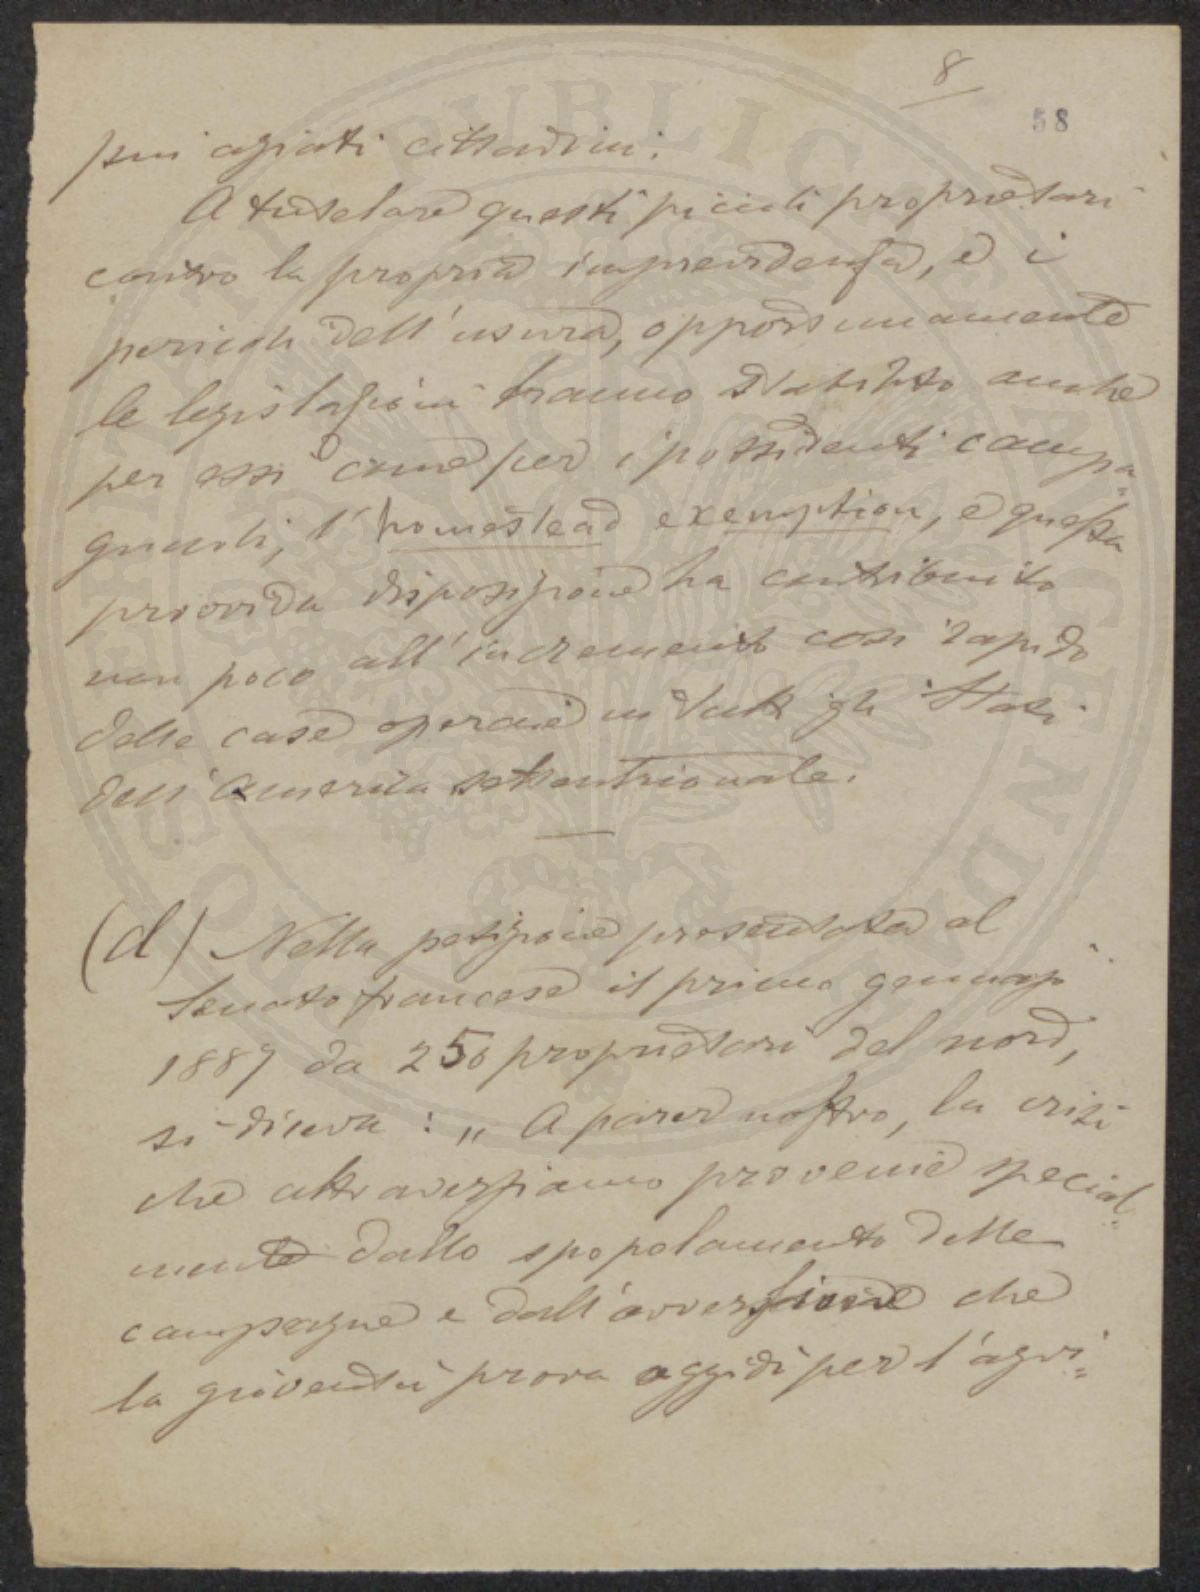 8
58
più agiati cittadini.
A tutelare questi piccoli proprietari
contro la propria imprevidenza, e i
pericoli dell'usura, opportunamente
le legislazioni hanno stabilito anche
per essi come per i possidenti campa=
gnuoli, l'homestead exemption, e questa
provvida disposizione ha contribuito
non poco all'incremento così rapido
delle case operaie in tutti gli Stati
dell'America settentrionale.
(d) Nella petizione presentata al
Senato francese il primo gennajo
1887 da 250 proprietari del nord,
si diceva: „ A parer nostro, la crisi
che attraversiamo proviene special=
mente dallo spopolamento delle
campagne e dall'avversione che
la gioventù prova oggidì per l'agri=